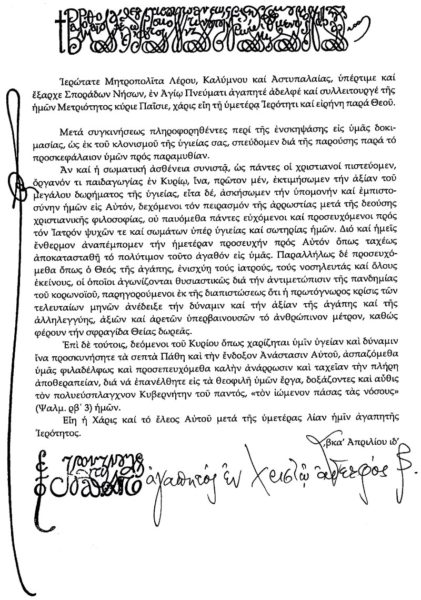 Ἱερώτατε Μητροπολῖτα Λέρου, Καλύμνου καί Ἀστυπαλαίας, ὑπέρτιμε καί
ἔξαρχε Σποράδων Νήσων, ἐν Ἁγίῳ Πνεύματι ἀγαπητέ ἀδελφέ καί συλλειτουργέ τῆς
ἡμῶν Μετριότητος κύριε Παΐσιε, χάρις εἴη τῇ ὑμετέρᾳ Ἱερότητι καί εἰρήνη παρά Θεοῦ.
Μετά συγκινήσεως πληροφορηθέντες περί τῆς ἐνσκηψάσης εἰς ὑμᾶς δοκι-
μασίας, ὡς ἐκ τοῦ κλονισμοῦ τῆς ὑγιείας σας, σπεύδομεν διά τῆς παρούσης παρά τό
προσκεφάλαιον ὑμῶν πρός παραμυθίαν.
Ἄν καί ἡ σωματική ἀσθένεια συνιστᾷ, ὡς πάντες οἱ χριστιανοί πιστεύομεν,
ὄργανόν τι παιδαγωγίας ἐν Κυρίῳ, ἵνα, πρῶτον μέν, ἐκτιμήσωμεν τήν ἀξίαν τοῦ
μεγάλου δωρήματος τῆς ὑγιείας, εἶτα δέ, ἀσκήσωμεν τήν ὑπομονήν καί ἐμπιστο-
σύνην ἡμῶν εἰς Αὐτόν, δεχόμενοι τόν πειρασμόν τῆς ἀρρωστίας μετά τῆς δεούσης
χριστιανικῆς φιλοσοφίας, οὐ παυόμεθα πάντες εὐχόμενοι καί προσευχόμενοι πρός
τόν Ἰατρόν ψυχῶν τε καί σωμάτων ὑπέρ ὑγιείας καί σωτηρίας ἡμῶν. Διό καί ἡμεῖς
ἔνθερμον ἀναπέμπομεν τήν ἡμετέραν προσευχήν πρός Αὐτόν ὅπως ταχέως
ἀποκατασταθῇ τό πολύτιμον τοῦτο ἀγαθόν εἰς ὑμᾶς. Παραλλήλως δέ προσευχό-
μεθα ὅπως ὁ Θεός τῆς ἀγάπης, ἐνισχύῃ τούς ἰατρούς, τούς νοσηλευτάς καί ὅλους
ἐκείνους, οἱ ὁποῖοι ἀγωνίζονται θυσιαστικῶς διά τήν ἀντιμετώπισιν τῆς πανδημίας
τοῦ κορωνοϊοῦ, παρηγορούμενοι ἐκ τῆς διαπιστώσεως ὅτι ἡ πρωτόγνωρος κρίσις τῶν
τελευταίων μηνῶν ἀνέδειξε τήν δύναμιν καί τήν ἀξίαν τῆς ἀγάπης καί τῆς
ἀλληλεγγύης, ἀξιῶν καί ἀρετῶν ὑπερβαινουσῶν τό ἀνθρώπινον μέτρον, καθώς
φέρουν τήν σφραγῖδα Θείας δωρεᾶς.
Ἐπί δέ τούτοις, δεόμενοι τοῦ Κυρίου ὅπως χαρίζηται ὑμῖν ὑγείαν καί δύναμιν
ἵνα προσκυνήσητε τά σεπτά Πάθη καί τήν ἔνδοξον Ἀνάστασιν Αὐτοῦ, ἀσπαζόμεθα
ὑμᾶς φιλαδέλφως καί προσεπευχόμεθα καλήν ἀνάρρωσιν καί ταχεῖαν τήν πλήρη
ἀποθεραπείαν, διά νά ἐπανέλθητε εἰς τά θεοφιλῆ ὑμῶν ἔργα, δοξάζοντες καί αὖθις
τόν πολυεύσπλαγχνον Κυβερνήτην τοῦ παντός, «τὸν ἰώμενον πάσας τὰς νόσους»
(Ψαλμ. ρβ΄ 3) ἡμῶν.
Εἴη ἡ Χάρις καί τό ἔλεος Αὐτοῦ μετά τῆς ὑμετέρας λίαν ἡμῖν ἀγαπητῆς
Ἱερότητος.
͵βκα΄ Ἀπριλίου ιδ΄
ἀγαπητός ἐν Χριστῷ ἀδελφός